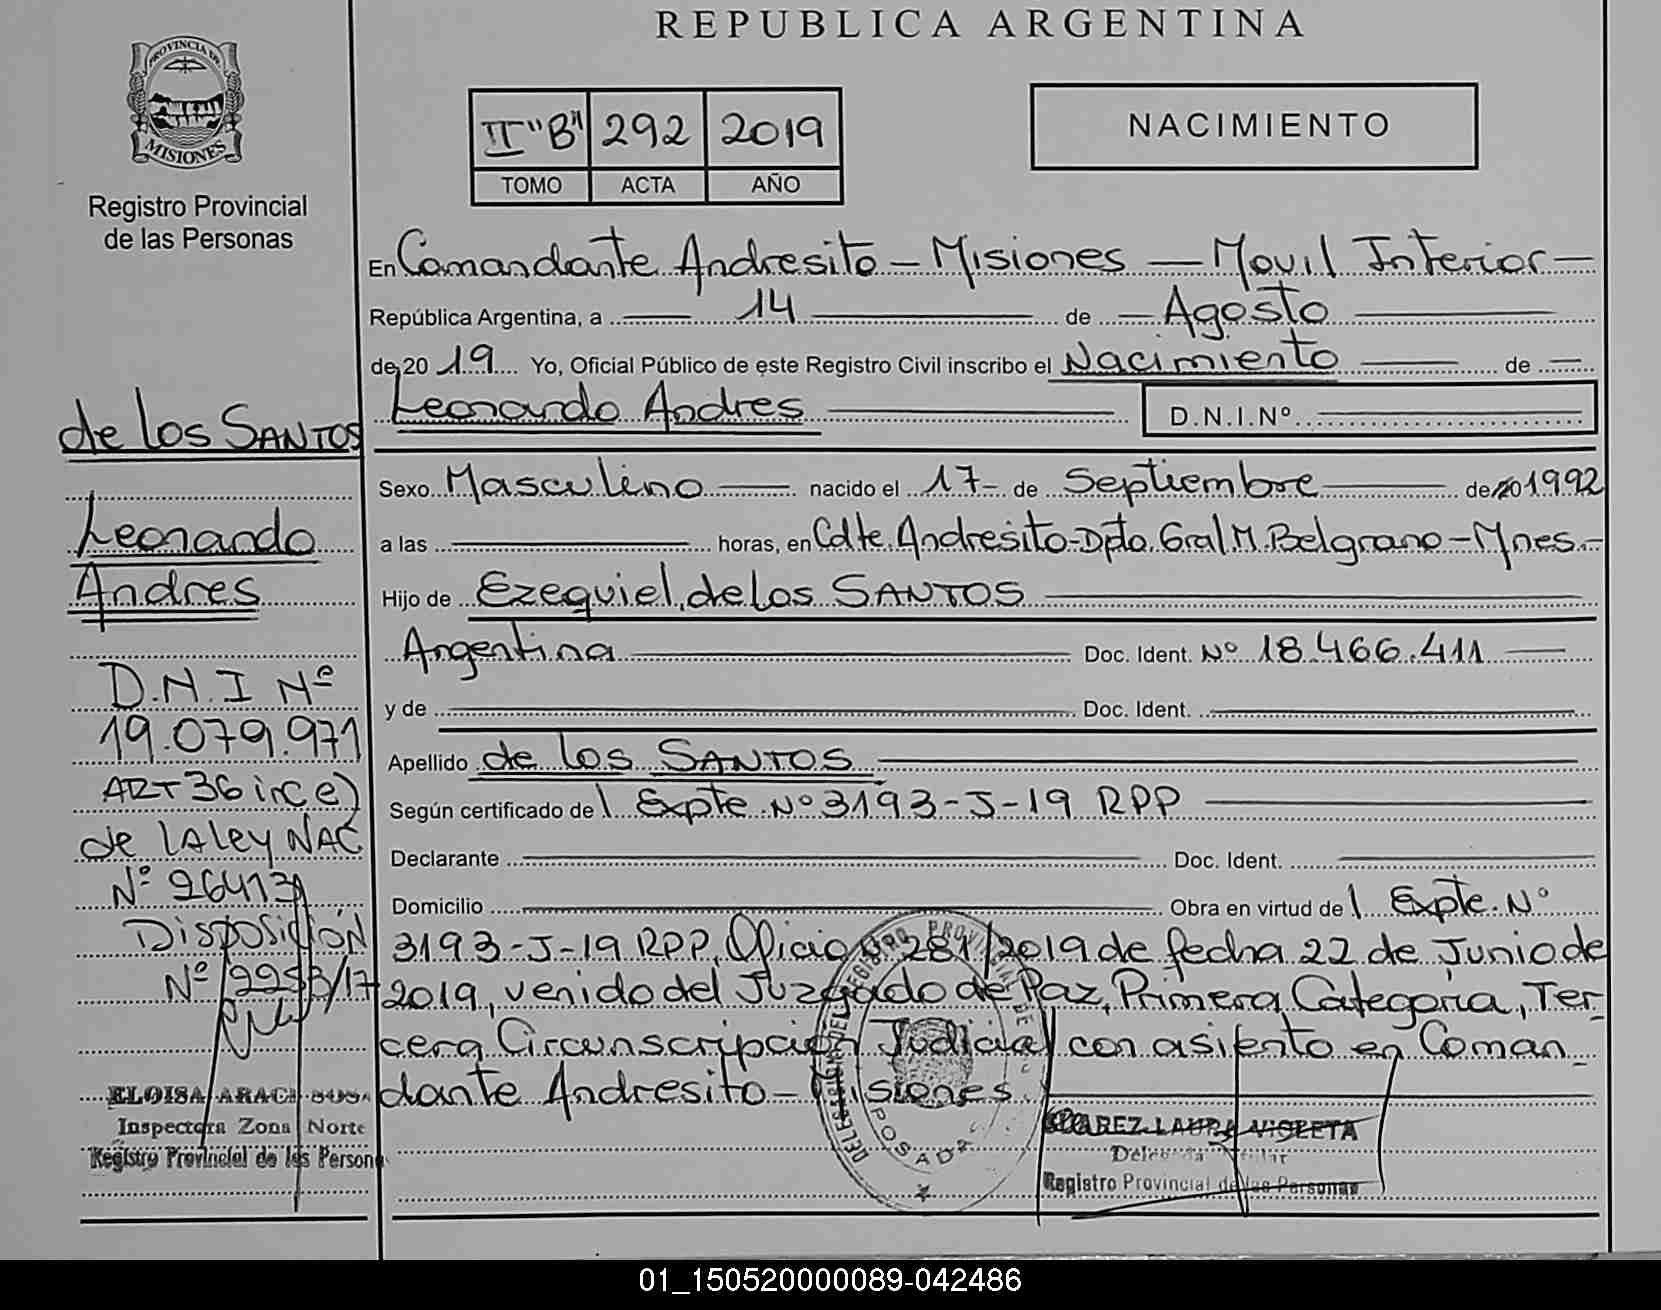 REPUBLICA ARGENTINA
PROVINCIA DE
MISIONES
Registro Provincial
de las Personas
II "B" 292 2019
TOMO ACTA AÑO
NACIMIENTO
En Comandante Andresito - Misiones - Movil Interior -
República Argentina, a 14 de Agosto
de 2019 Yo, Oficial Público de este Registro Civil inscribo el Nacimiento de
Leonardo Andres D.N.I.Nº
Sexo Masculino nacido el 17- de Septiembre de 20 1992
a las horas, en Cdte. Andresito-Dpto. Gral. M. Belgrano - Mnes.-
Hijo de Ezequiel de los SANTOS
Argentina Doc. Ident. Nº 18.466.411
y de Doc. Ident.
Apellido de los SANTOS
Según certificado de Expte. Nº 3193-J-19 RPP
Declarante Doc. Ident.
Domicilio Obra en virtud de Expte. Nº
3193-J-19 RPP, Oficio 281/2019 de fecha 22 de Junio de
2019, venido del Juzgado de Paz, Primera Categoria, Ter-
cera Circunscripción Judicial con asiento en Coman
dante Andresito - Misiones.
de los SANTOS
Leonardo
Andres
D.N.I Nº
19.079.971
ART 36 inc e)
de la ley NAC
Nº 26413
Disposición
Nº 2253/17
ELOISA ARACI SOSA
Inspectora Zona Norte
Registro Provincial de las Persona
POSADAS
LAURA VIOLETA
Delegada Titular
Registro Provincial de las Personas
01_150520000089-042486